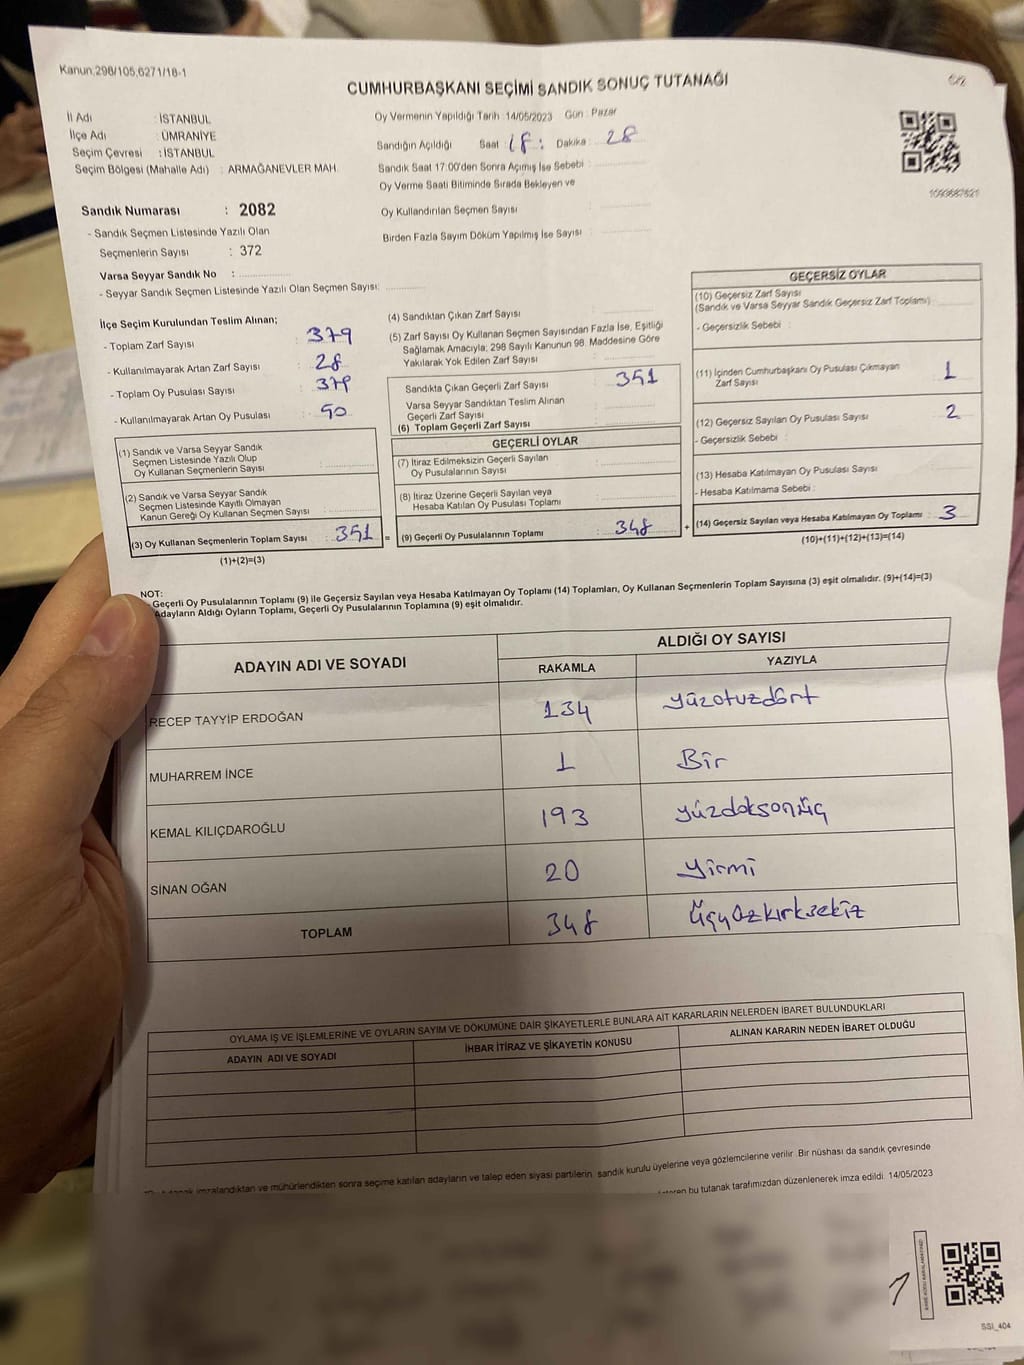 Kanun:298/105,6271/18-1
CUMHURBAŞKANI SEÇİMİ SANDIK SONUÇ TUTANAĞI
İl Adı : İSTANBUL
İlçe Adı : ÜMRANİYE
Seçim Çevresi : İSTANBUL
Seçim Bölgesi (Mahalle Adı) : ARMAĞANEVLER MAH.
Oy Vermenin Yapıldığı Tarih :14/05/2023 Gün : Pazar
Sandığın Açıldığı Saat : 18 : Dakika : 28
Sandık Saat 17:00'den Sonra Açımış İse Sebebi :
Oy Verme Saati Bitiminde Sırada Bekleyen ve
Oy Kullandırılan Seçmen Sayısı :
Birden Fazla Sayım Döküm Yapılmış İse Sayısı :
1093687621
Sandık Numarası : 2082
- Sandık Seçmen Listesinde Yazılı Olan
Seçmenlerin Sayısı : 372
Varsa Seyyar Sandık No :
- Seyyar Sandık Seçmen Listesinde Yazılı Olan Seçmen Sayısı:
İlçe Seçim Kurulundan Teslim Alınan;
- Toplam Zarf Sayısı : 379
- Kullanılmayarak Artan Zarf Sayısı : 28
- Toplam Oy Pusulası Sayısı : 379
- Kullanılmayarak Artan Oy Pusulası :
(1) Sandık ve Varsa Seyyar Sandık
Seçmen Listesinde Yazılı Olup
Oy Kullanan Seçmenlerin Sayısı :
(2) Sandık ve Varsa Seyyar Sandık
Seçmen Listesinde Kayıtlı Olmayan
Kanun Gereği Oy Kullanan Seçmen Sayısı :
(3) Oy Kullanan Seçmenlerin Toplam Sayısı : 351 =
(1)+(2)=(3)
(4) Sandıktan Çıkan Zarf Sayısı :
(5) Zarf Sayısı Oy Kullanan Seçmen Sayısından Fazla İse, Eşitliği
Sağlamak Amacıyla; 298 Sayılı Kanunun 98. Maddesine Göre
Yakılarak Yok Edilen Zarf Sayısı :
Sandıkta Çıkan Geçerli Zarf Sayısı : 351
Varsa Seyyar Sandıktan Teslim Alınan
Geçerli Zarf Sayısı :
(6) Toplam Geçerli Zarf Sayısı :
GEÇERLİ OYLAR
(7) İtiraz Edilmeksizin Geçerli Sayılan
Oy Pusulalarının Sayısı :
(8) İtiraz Üzerine Geçerli Sayılan veya
Hesaba Katılan Oy Pusulası Toplamı :
(9) Geçerli Oy Pusulalarının Toplamı : 348 +
GEÇERSİZ OYLAR
(10) Geçersiz Zarf Sayısı
(Sandık ve Varsa Seyyar Sandık Geçersiz Zarf Toplamı) :
- Geçersizlik Sebebi :
(11) İçinden Cumhurbaşkanı Oy Pusulası Çıkmayan
Zarf Sayısı : 1
(12) Geçersiz Sayılan Oy Pusulası Sayısı : 2
- Geçersizlik Sebebi :
(13) Hesaba Katılmayan Oy Pusulası Sayısı :
- Hesaba Katılmama Sebebi :
(14) Geçersiz Sayılan veya Hesaba Katılmayan Oy Toplamı : 3
(10)+(11)+(12)+(13)=(14)
NOT:
- Geçerli Oy Pusulalarının Toplamı (9) ile Geçersiz Sayılan veya Hesaba Katılmayan Oy Toplamı (14) Toplamları, Oy Kullanan Seçmenlerin Toplam Sayısına (3) eşit olmalıdır. (9)+(14)=(3)
Adayların Aldığı Oyların Toplamı, Geçerli Oy Pusulalarının Toplamına (9) eşit olmalıdır.
ADAYIN ADI VE SOYADI ALDIĞI OY SAYISI
RAKAMLA YAZIYLA
RECEP TAYYİP ERDOĞAN 134 yüzotuzdört
MUHARREM İNCE 1 Bir
KEMAL KILIÇDAROĞLU 193 yüzdoksanüç
SİNAN OĞAN 20 yirmi
TOPLAM 348 üçyüzkırksekiz
OYLAMA İŞ VE İŞLEMLERİNE VE OYLARIN SAYIM VE DÖKÜMÜNE DAİR ŞİKAYETLERLE BUNLARA AİT KARARLARIN NELERDEN İBARET BULUNDUKLARI
ADAYIN ADI VE SOYADI İHBAR İTİRAZ VE ŞİKAYETİN KONUSU ALINAN KARARIN NEDEN İBARET OLDUĞU
tutanak imzalandıktan ve mühürlendikten sonra seçime katılan adayların ve talep eden siyasi partilerin sandık kurulu üyelerine veya gözlemcilerine verilir. Bir nüshası da sandık çevresinde
bu tutanak tarafımızdan düzenlenerek imza edildi. 14/05/2023
SSI_404